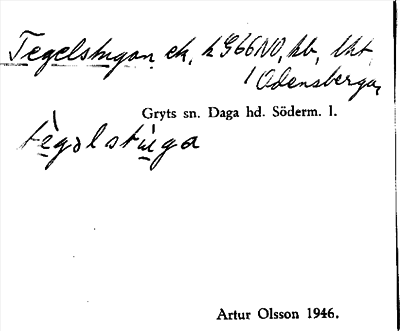 Tegelstugan ek, k G66NO, hb, lht
/ Odensberga,
Gryts sn. Daga hd. Söderm. l.
tè̱gəlstù̱ga
Artur Olsson 1946.